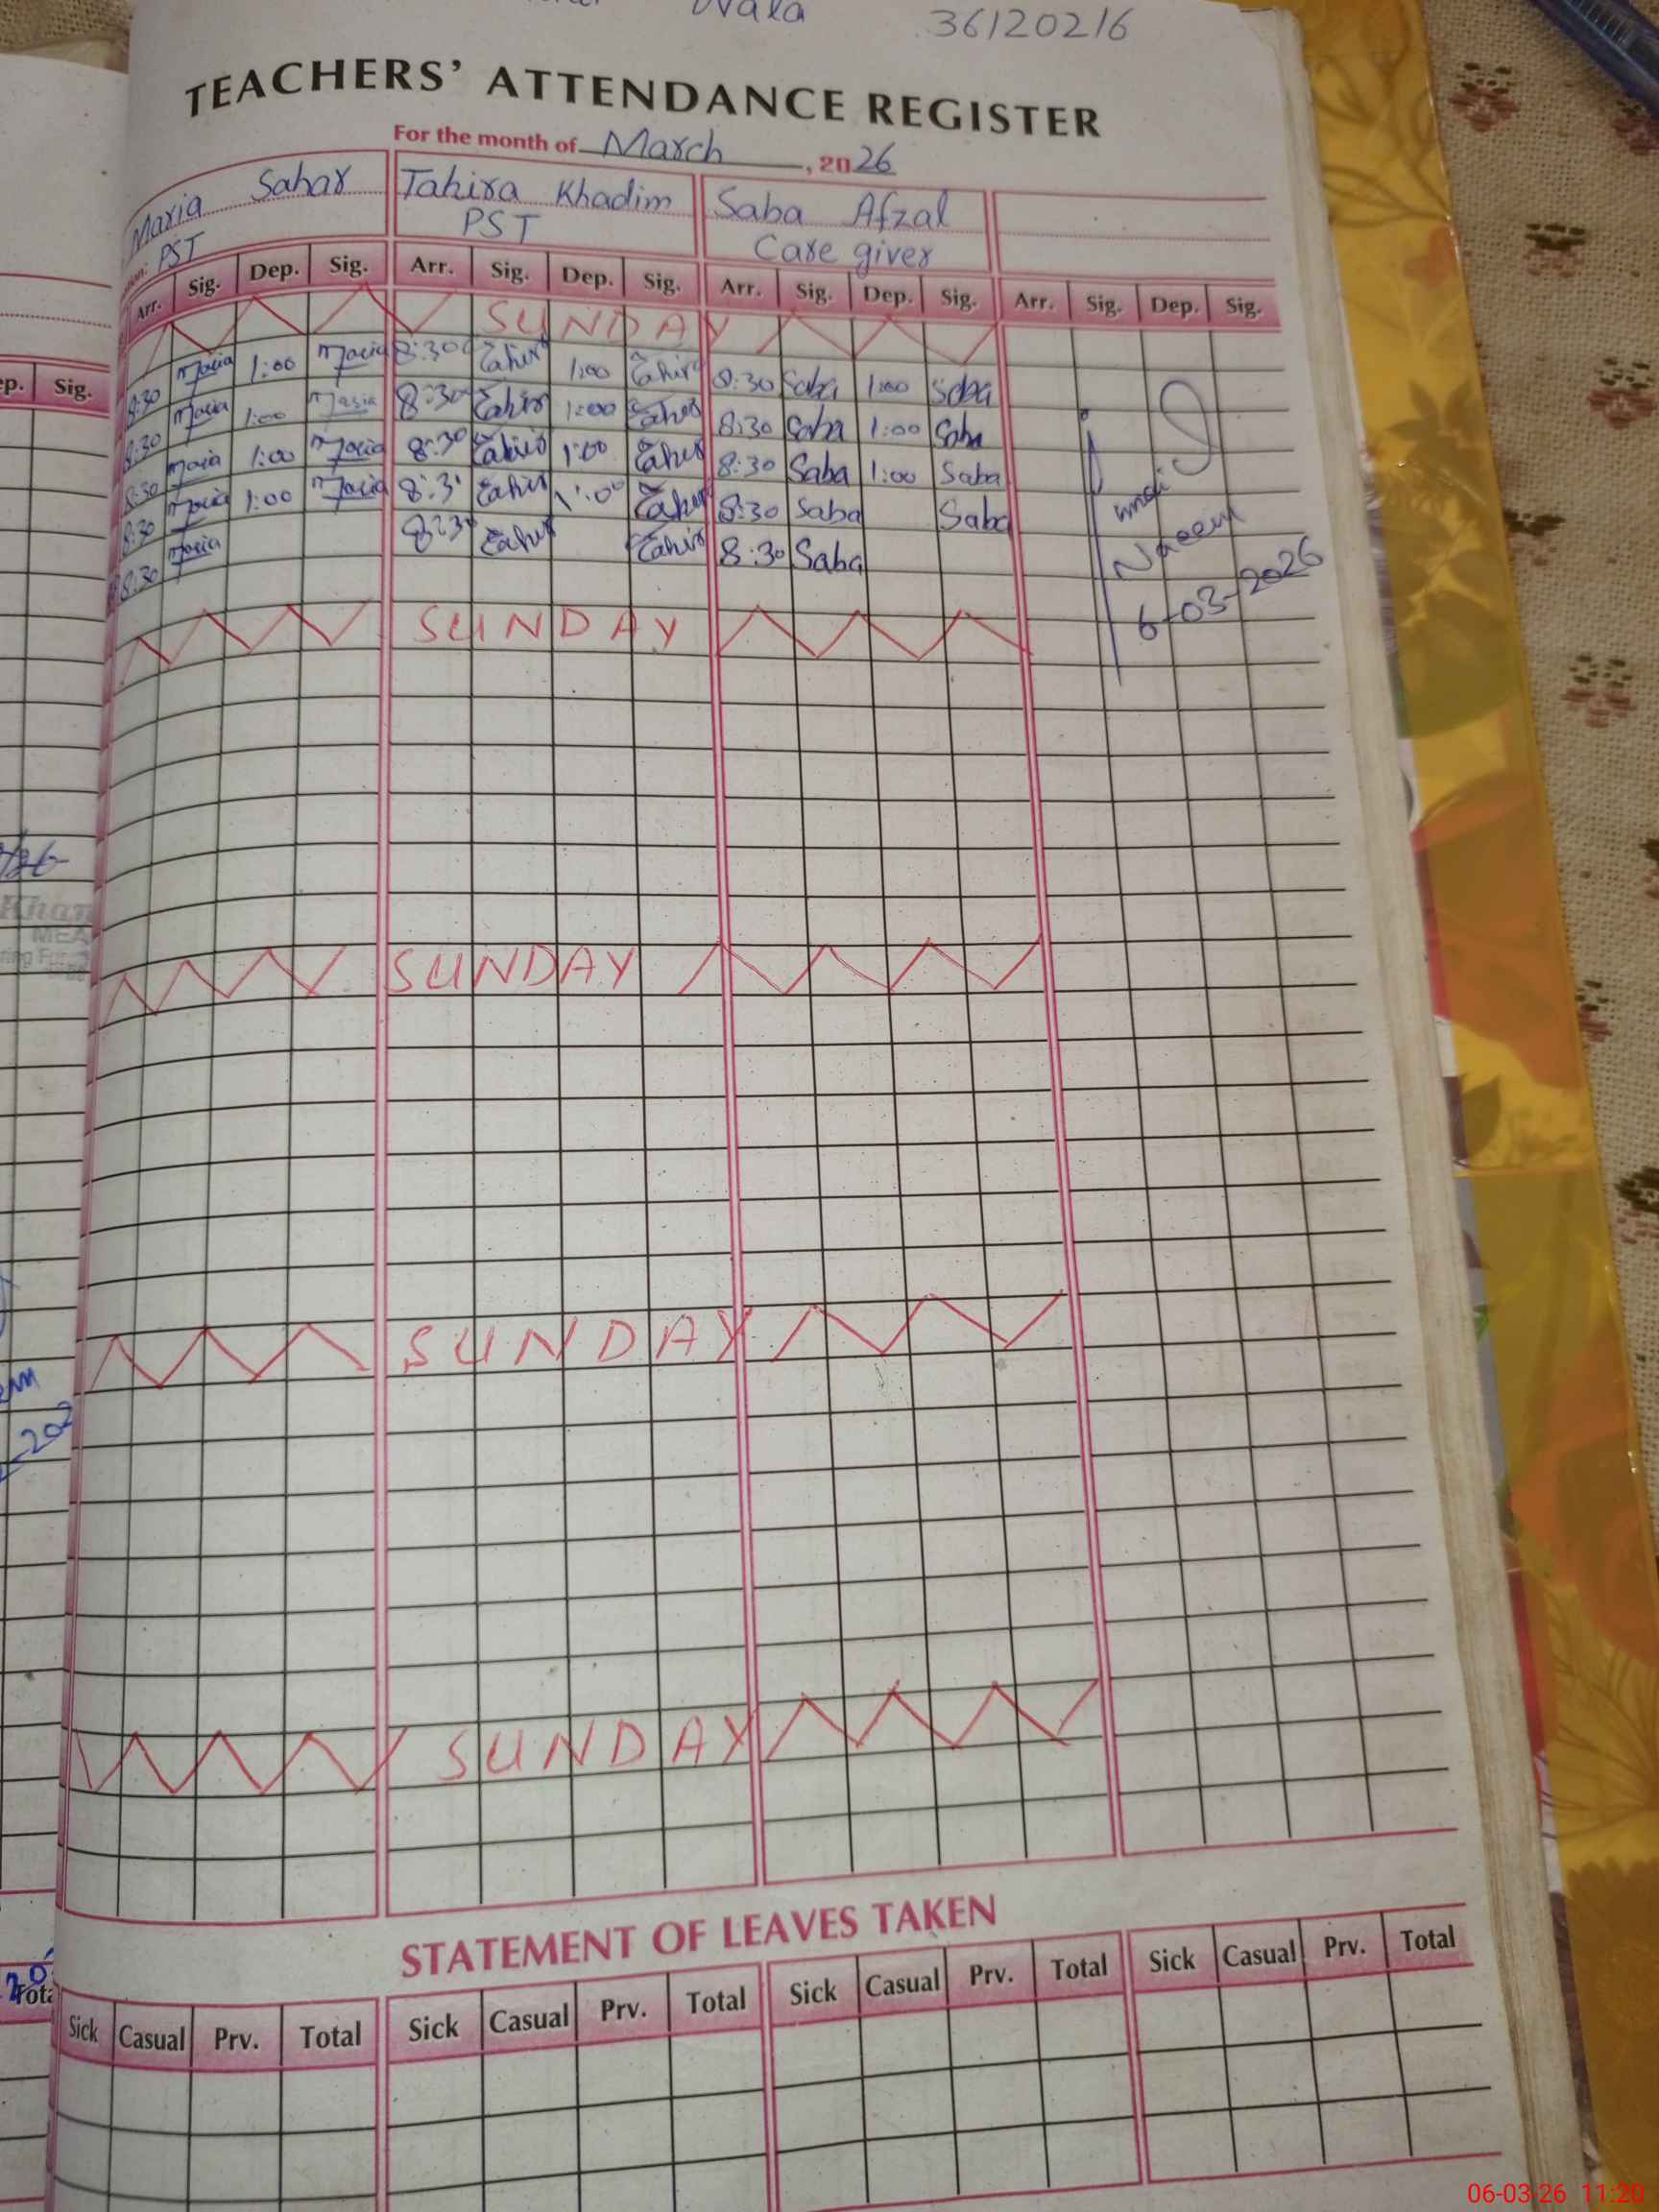 Wala 36120216
TEACHERS' ATTENDANCE REGISTER
For the month of March, 2026
Maria Sahar Tahira Khadim Saba Afzal
PST PST Care giver
Arr. Sig. Dep. Sig. Arr. Sig. Dep. Sig. Arr. Sig. Dep. Sig. Arr. Sig. Dep. Sig.
SUNDAY
8:30 Maria 1:00 Maria 8:30 Tahir 1:00 Tahir 8:30 Saba 1:00 Saba
8:30 Maria 1:00 Maria 8:30 Tahir 1:00 Tahir 8:30 Saba 1:00 Saba
8:30 Maria 1:00 Maria 8:30 Tahir 1:00 Tahir 8:30 Saba 1:00 Saba
8:30 Maria 1:00 Maria 8:3 Tahir 1:00 Tahir 8:30 Saba Saba
8:30 Maria 8:30 Tahir Tahir 8:30 Saba
Naeem
6-03-2026
SUNDAY
SUNDAY
SUNDAY
SUNDAY
STATEMENT OF LEAVES TAKEN
Sick Casual Prv. Total Sick Casual Prv. Total Sick Casual Prv. Total Sick Casual Prv. Total
Sig.
Khan
06-03-26 11:20